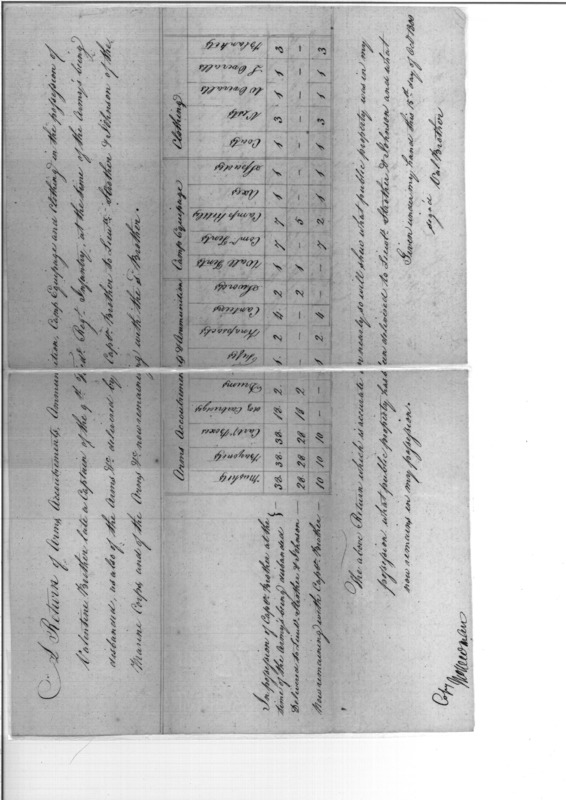 A Return of Arms Accoutrements, Ammunition, Camp Equipage and Clothing in the possession of
Valentine Brother late a Captain of the 9th Regt. Infantry, at the time of the Army's being
disbanded, as also of the Arms &c delivered by Capt. Brother to Lieuts. Strother & Johnson of the
Marine Corps and of the Arms &c now remaining with the sd. Brother.
Arms Accoutrements & Ammunition Camp Equipage Clothing
Muskets Bayonets Cart. Boxes Cartridges Drums Fifes Knapsacks Canteens Swords Wall Tents Comn. Tents Camp Kettles Axes Spades Coats Vests W Overalls L Overalls Blankets
In possession of Capt. Brother at the
time of the Army's being disbanded } 38 38 38 18 2 1 2 4 2 1 7 7 1 1 1 3 1 1 3
Delivered to Lieuts. Strother & Johnson 28 28 28 18 2 - - - 2 1 - 5 - - - - - - -
Now remaining with Capt. Brother 10 10 10 - - 1 2 4 - - 7 2 1 1 1 3 1 1 3
The above Return which is accurate or nearly so will shew what public property was in my
possession what public property has been delivered to Lieuts. Strother & Johnson and what
now remains in my possession.
Given under my hand this 15th day of Oct. 1800
sign'd Val Brother
Newman